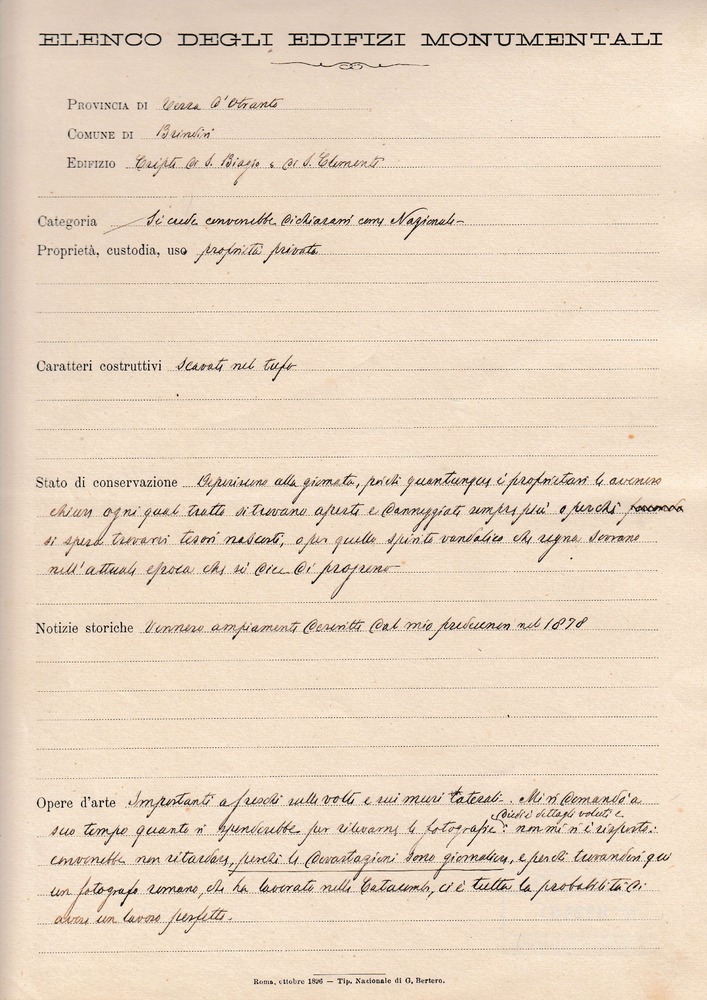 ELENCO DEGLI EDIFIZI MONUMENTALI
PROVINCIA DI Terra d'Otranto
COMUNE DI Brindisi
EDIFIZIO Cripte di S. Biagio e di S. Clemente
Categoria Si crede converrebbe dichiararsi come Nazionale
Proprietà, custodia, uso proprietà privata
Caratteri costruttivi scavate nel tufo
Stato di conservazione Deperiscono alla giornata, poichè quantunque i proprietari le avessero
chiuse ogni qual tratto si trovano aperte e danneggiate sempre più o perchè
si spera trovarvi tesori nascosti, o per quello spirito vandalico che regna sovrano
nell'attuale epoca che si dice di progresso
Notizie storiche Vennero ampiamente descritte dal mio predecessore nel 1878
Opere d'arte Importanti afreschi sulle volte e sui muri laterali. Mi si domandò a
suo tempo quanto si spenderebbe per rilevarne le fotografie: non mi si è risposto:
diedi i dettagli voluti e
converrebbe non ritardare, perchè le devastazioni sono giornaliere, e perchè trovandosi qui
un fotografo romano, che ha lavorato nelle Catacombe, ci è tutta la probabilità di
avere un lavoro perfetto.
Roma, ottobre 1896 — Tip. Nazionale di G. Bertero.